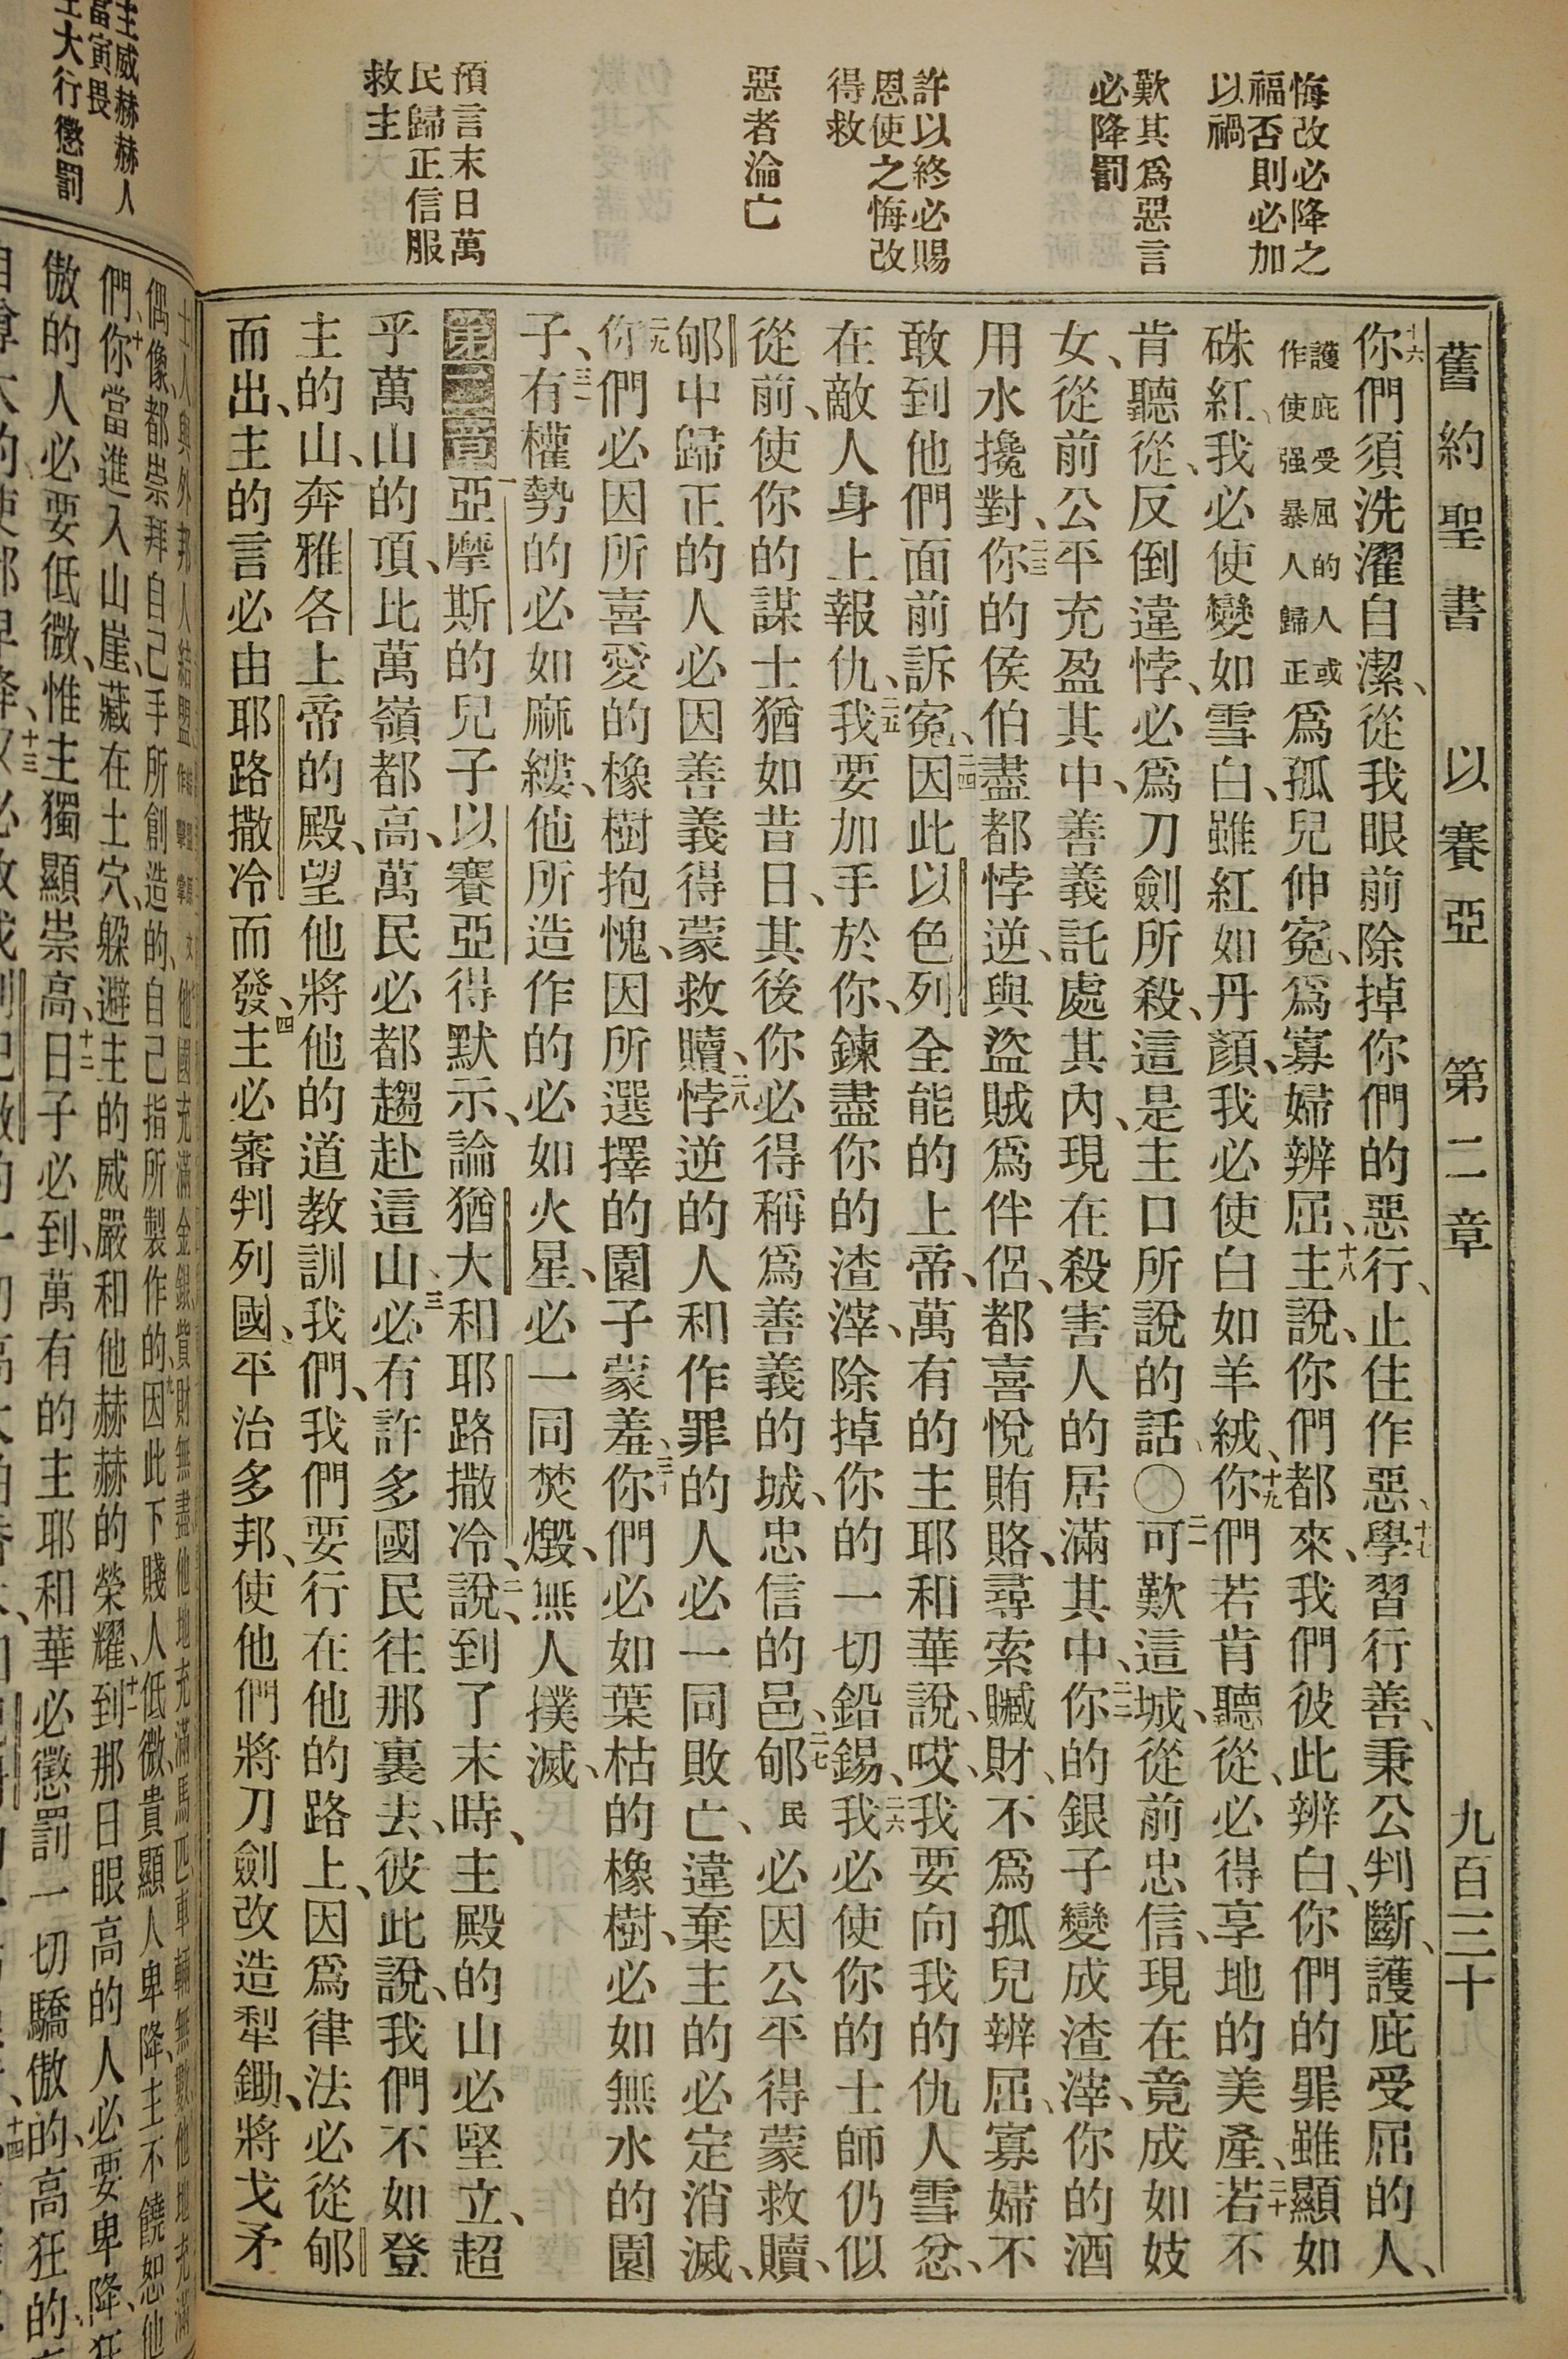 舊約聖書 以賽亞 第二章 九百三十
悔改必降之
福否則必加
以禍
歎其爲惡言
必降罰
許以終必賜
恩使之悔改
得救
惡者淪亡
預言末日萬
民歸正信服
救主
十六你們須洗濯自潔、從我眼前除掉你們的惡行、止住作惡、十七學習行善、秉公判斷、護庇受屈的人、
護庇受屈的人或
作使强暴人歸正
爲孤兒伸寃、爲寡婦辨屈、十八主說、你們都來、我們彼此辨白、你們的罪雖顯如
硃紅、我必使變如雪白、雖紅如丹顏、我必使白如羊絨、十九你們若肯聽從、必得享地的美產、二十若不
肯聽從、反倒違悖、必爲刀劍所殺、這是主口所說的話、〇二一可歎這城、從前忠信、現在竟成如妓
女、從前公平充盈其中、善義託處其內、現在殺害人的居滿其中、二二你的銀子變成渣滓、你的酒
用水攙對、二三你的侯伯盡都悖逆、與盜賊爲伴侶、都喜悅賄賂、尋索贓財、不爲孤兒辨屈、寡婦不
敢到他們面前訴寃、二四因此以色列全能的上帝、萬有的主耶和華說、哎、我要向我的仇人雪忿、
在敵人身上報仇、二五我要加手於你、鍊盡你的渣滓、除掉你的一切鉛錫、二六我必使你的士師仍似
從前、使你的謀士猶如昔日、其後你必得稱爲善義的城、忠信的邑、二七郇民必因公平得蒙救贖、
郇中歸正的人必因善義得蒙救贖、二八悖逆的人和作罪的人必一同敗亡、違棄主的必定消滅、
二九你們必因所喜愛的橡樹抱愧、因所選擇的園子蒙羞、三十你們必如葉枯的橡樹、必如無水的園
子、三一有權勢的必如麻縷、他所造作的必如火星、必一同焚燬、無人撲滅、
第二章一亞摩斯的兒子以賽亞得默示、論猶大和耶路撒冷、說、二到了末時、主殿的山必堅立、超
乎萬山的頂、比萬嶺都高、萬民必都趨赴這山、三必有許多國民往那裏去、彼此說、我們不如登
主的山、奔雅各上帝的殿、望他將他的道教訓我們、我們要行在他的路上、因爲律法必從郇
而出、主的言必由耶路撒冷而發、四主必審判列國、平治多邦、使他們將刀劍改造犁鋤、將戈矛
主威赫赫人
當寅畏
主大行懲罰
偶像、都崇拜自己手所創造的、自己指所製作的、因此下賤人低微、貴顯人卑降、主不饒恕他
們、十你當進入山崖、藏在土穴、躲避主的威嚴和他赫赫的榮耀、十一到那日眼高的人必要卑降、狂
傲的人必要低微、惟主獨顯崇高、十二日子必到、萬有的主耶和華必懲罰一切驕傲的、高狂的、